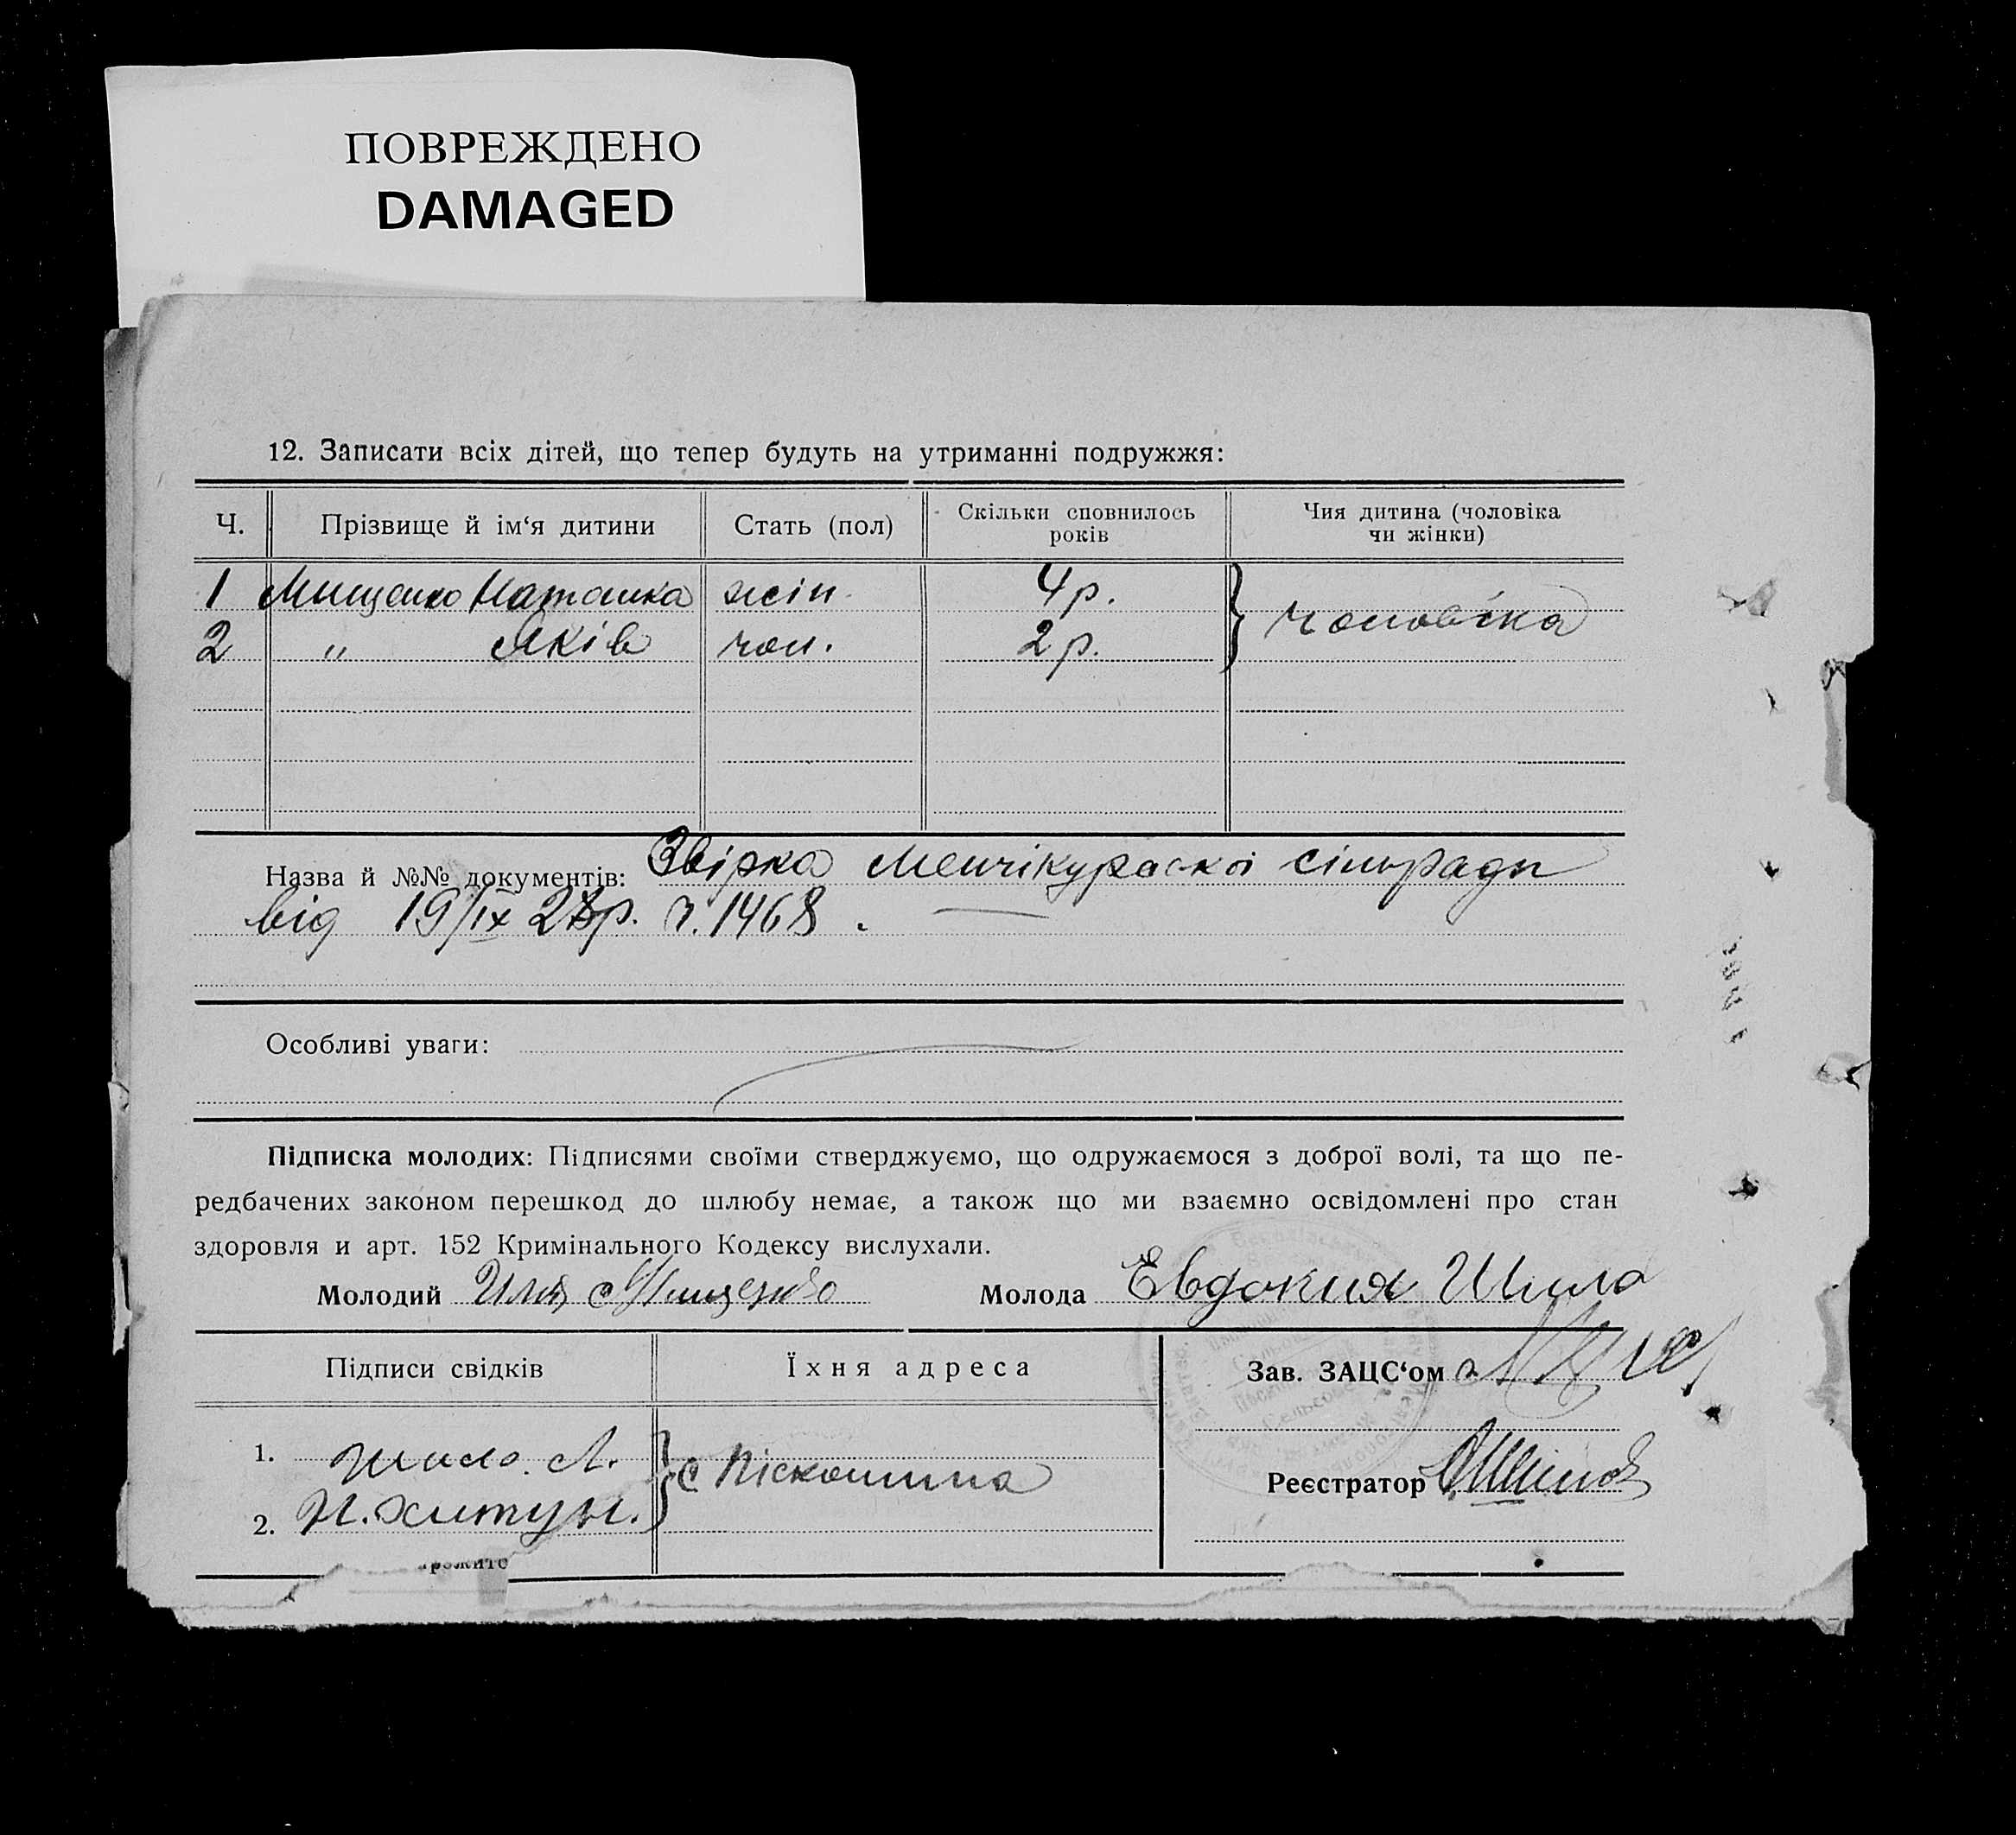 ПОВРЕЖДЕНО
DAMAGED
12. Записати всіх дітей, що тепер будуть на утриманні подружжя:
Ч. Прізвище й ім‘я дитини Стать (пол) Скільки сповнилось років Чия дитина (чоловіка чи жінки)
1 Мищенко Наташка жін. 4 р. чоловіка
2 " Яків чол. 2 р.
Назва й №№ документів: Звірка Менчікурської сільради
від 19/IX 28р. ч. 1468.
Особливі уваги:
Підписка молодих: Підписями своїми стверджуємо, що одружаємося з доброї волі, та що пе-
редбачених законом перешкод до шлюбу немає, а також що ми взаємно освідомлені про стан
здоровля и арт. 152 Кримінального Кодексу вислухали.
Молодий Илля Мищенко Молода Евдокия Шило
Підписи свідків Їхня адреса Зав. ЗАЦС‘ом
1. Шило. А. с Піскошина
Реєстратор
2. И. Хитун.